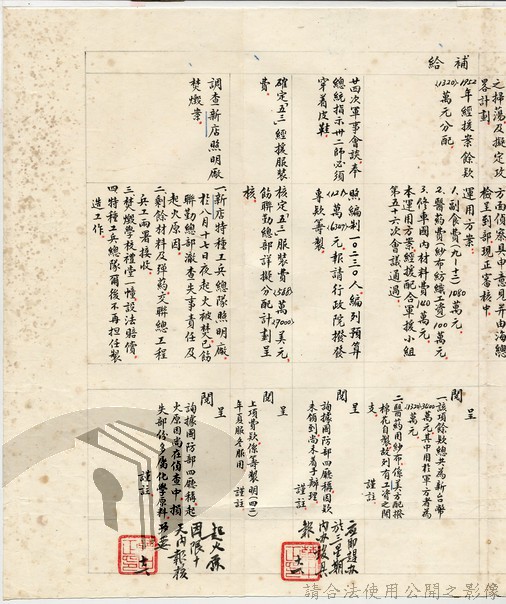 補給
之掃蕩及擬定攻
畧計劃
方面偵察其中意見并由海總
檢呈到部現正審核中
1952
(1320)年經援案餘款
萬元分配
運用方案
1.副食費(九-十二)1080萬元
2.醫藥費紗布紡織工資100萬元
3.修車國內材料費140萬元
本運用方案經援配合軍援小組
第五十六次會議通過
呈
閱
一該項餘款總共為新台幣
萬元其中用於軍方者為
1320萬元
二醫藥用紗布係美方配撥
棉花自製故列有工資之開
支
謹註
廿四次軍事會談奉
總統指示卅二師必須
穿着皮鞋
照編制一〇二三〇人編列預算
萬(637)元報請行政院撥發
專款籌製
呈
閱
詢據國防部四廳稱因款
未領到尚未着手辦理
謹註
應即趕辦
於三星期
內辦撥具
報
確定五三經援服裝
費
核定五三服裝費(588)萬(7000)美元
飭聯勤總部詳擬分配計劃呈
核
呈
閱
上項費款係籌製明(四二)
年夏服冬服用
謹註
調查新店照明廠
焚燬案
一、新店特種工兵總隊照明廠
於八月十七日夜起火被焚已飭
聯勤總部澈查失事責任及
起火原因
二剩餘材料及彈葯交聯總工程
兵工兩署接收
三焚燬學校禮堂一幢設法賠償
四特種工兵總隊爾後不再担任製
造工作
呈
閱
詢據國防部四廳稱起
火原因尚在偵查中損
失部份多屬化學原料
謹註
起火原
因限十
天內報核
功妥
請合法使用公開之影像